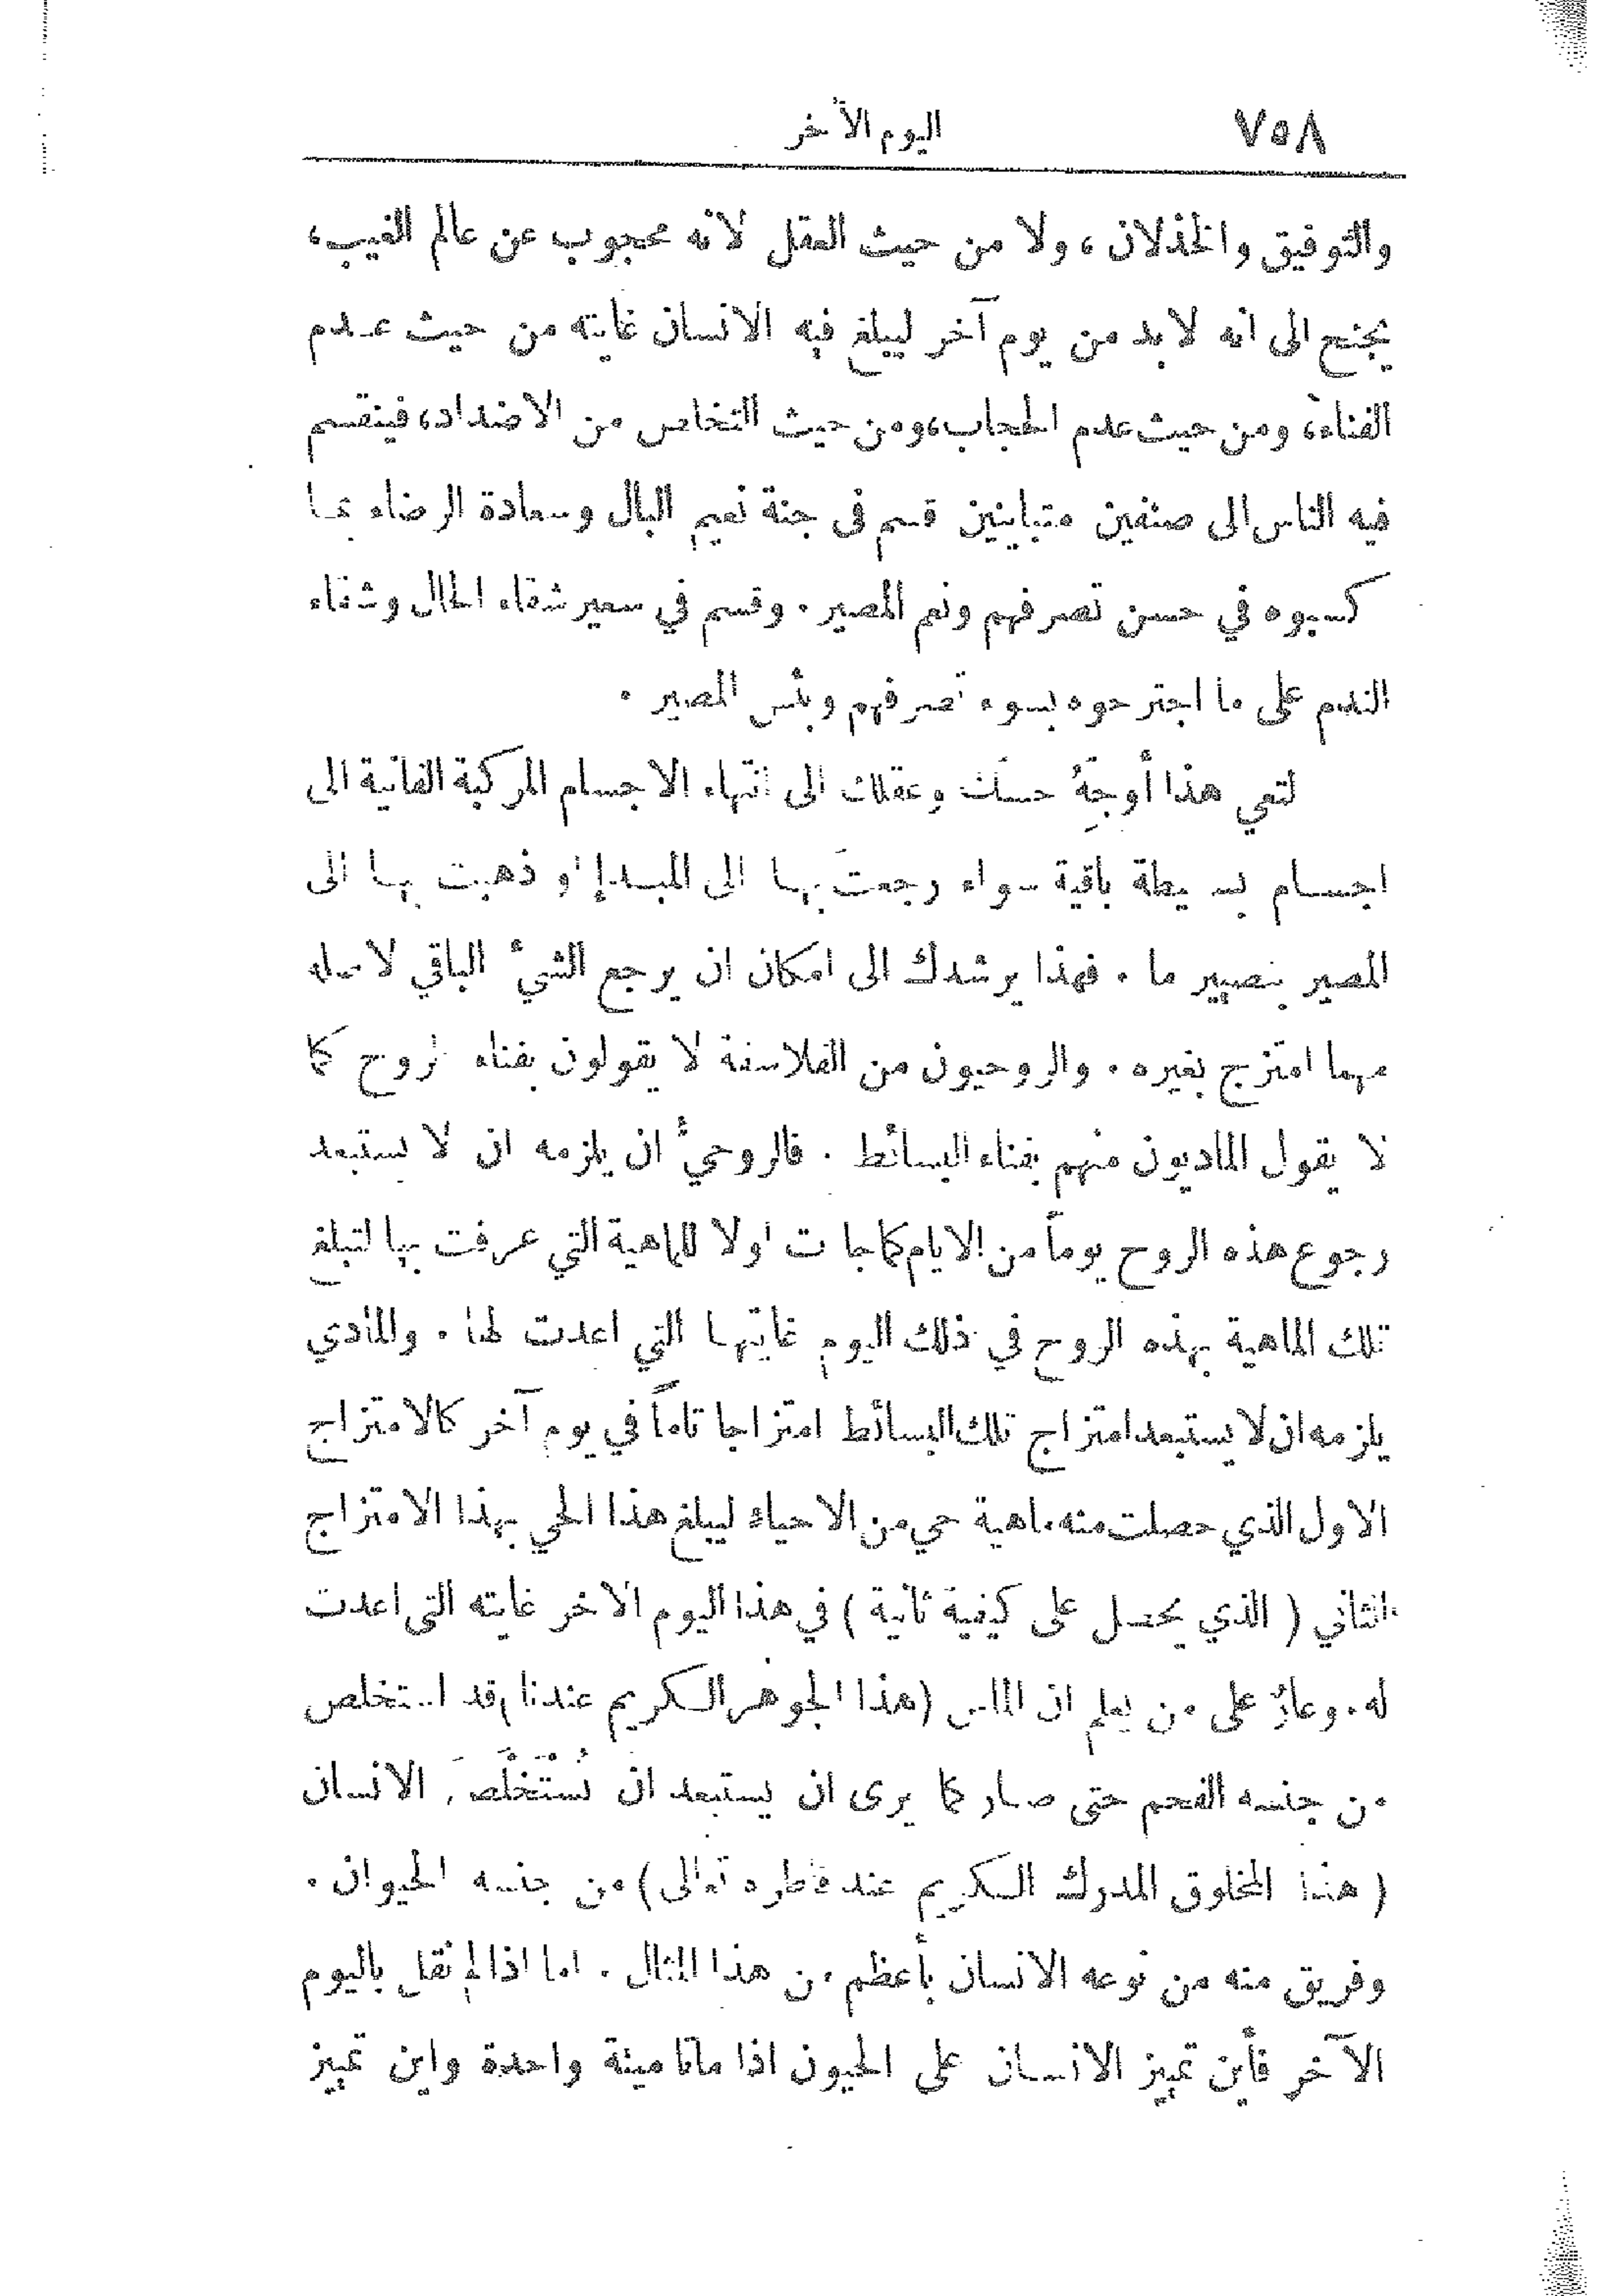 ٧٥٨ اليوم الآخر
والتوفيق والخذلان ، ولا من حيث العقل لانه محجوب عن عالم الغيب ،
يجنح الى انه لا بد من يوم آخر ليبلغ فيه الانسان غايته من حيث عدم
الفناء، ومن حيث عدم الحجاب،ومن حيث التخلص من الاضداد، فينقسم
فيه الناس الى صنفين متباينين قسم في جنة نعيم البال وسعادة الرضاء بما
كسبوه في حسن تصرفهم ونعم المصير . وقسم في سعير شقاء الحال وشقاء
الندم على ما اجترحوه بسوء تصرفهم وبئس المصير .
لتعي هذا أوجِّهُ حسك وعقلك الى انتهاء الاجسام المركبة الفانية الى
اجسام بسيطة باقية سواء رجعتَ بها الى المبدإ او ذهبت بها الى
المصير بتصيير ما . فهذا يرشدك الى امكان ان يرجع الشيُ الباقي لاصله
مهما امتزج بغيره . والروحيون من الفلاسفة لا يقولون بفناء الروح كما
لا يقول الماديون منهم بفناء البسائط . فالروحيُّ ان يلزمه ان لا يستبعد
رجوع هذه الروح يوماً من الايام كما جات اولا للماهية التي عرفت بها لتبلغ
تلك الماهية بهذه الروح في ذلك اليوم غايتها التي اعدت لها . والمادي
يلزمه ان لا يستبعد امتزاج تلك البسائط امتزاجا تاماً في يوم آخر كالامتزاج
الاول الذي حصلت منه ماهية حي من الاحياء ليبلغ هذا الحي بهذا الامتزاج
الثاني ( الذي يحصل على كيفية ثانية ) في هذا اليوم الآخر غايته التى اعدت
له . وعارٌ على من يعلم ان الماس (هذا الجوهر الكريم عندنا) قد استخلص
من جنسه الفحم حتى صار كما يرى ان يستبعد ان يُسْتَخْلَصَ الانسان
( هذا المخلوق المدرك الكريم عند فاطره تعالى ) من جنسه الحيوان .
وفريق منه من نوعه الانسان بأعظم من هذا المثال . اما اذا لم نقل باليوم
الآخر فأين تميز الانسان على الحيون اذا ماتا ميتة واحدة واين تميز